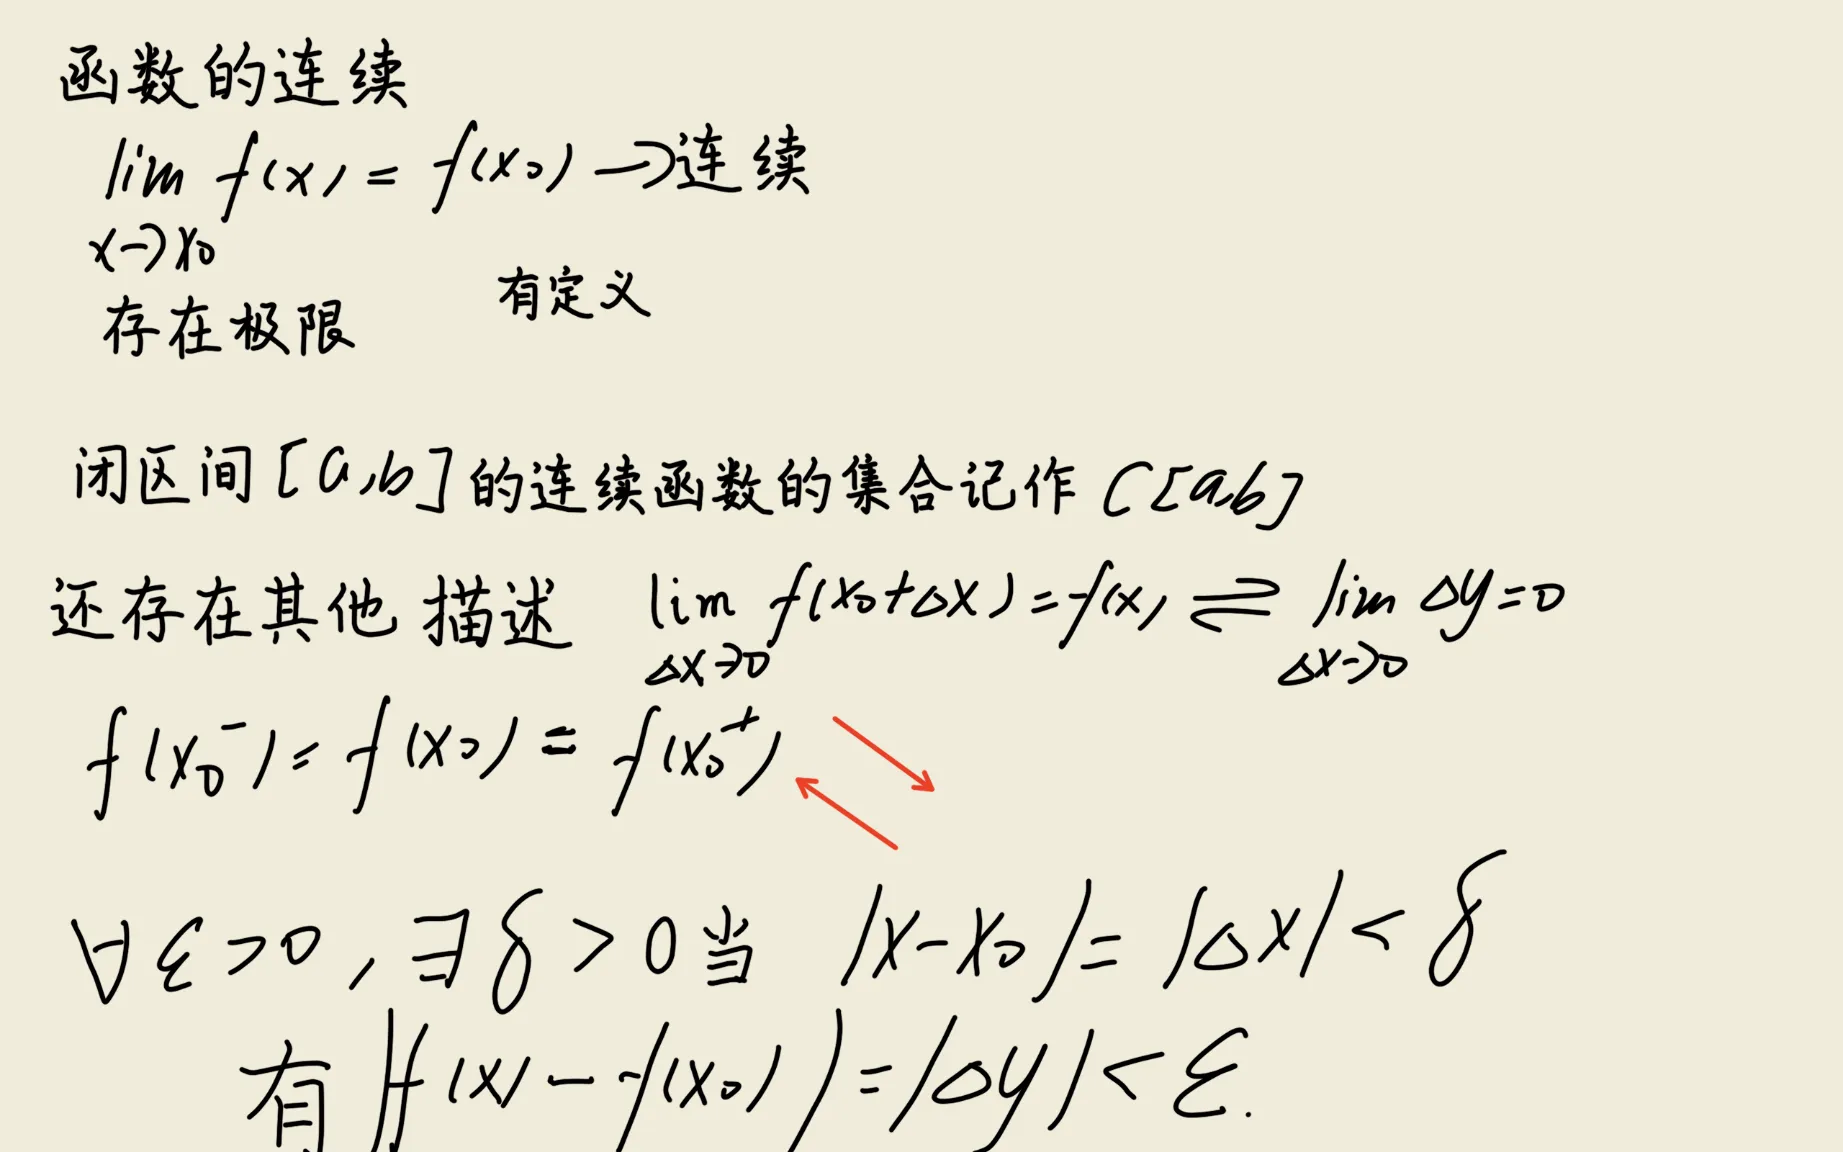 函数的连续
lim f(x) = f(x₀) → 连续
x→x₀
存在极限 有定义
闭区间[a,b]的连续函数的集合记作 C[a,b]
还存在其他描述 lim f(x₀+Δx) = f(x) ⇌ lim Δy=0
Δx→0 Δx→0
f(x₀⁻) = f(x₀) = f(x₀⁺)
∀ε>0, ∃δ>0当 |x-x₀| = |Δx| < δ
有|f(x) - f(x₀)| = |Δy| < ε.